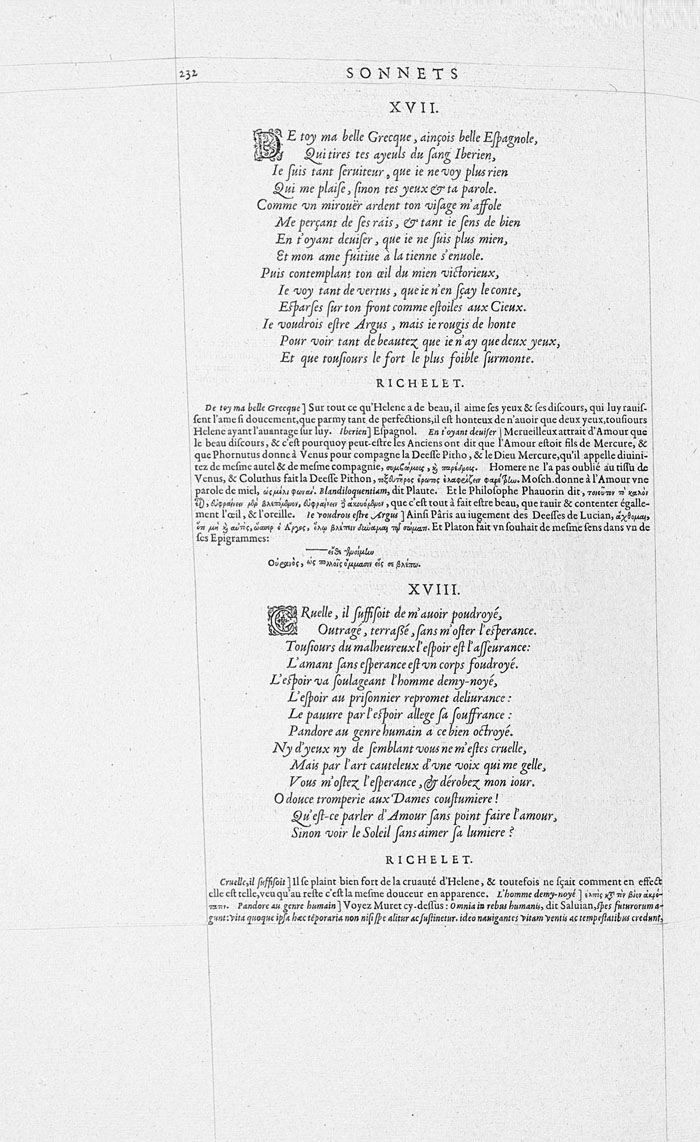 232 SONNETS
XVII.
DE toy ma belle Grecque, ainçois belle Espagnole,
Qui tires tes ayeuls du sang Iberien,
Ie suis tant seruiteur, que ie ne voy plus rien
Qui me plaise, sinon tes yeux & ta parole.
Comme vn mirouër ardent ton visage m'affole
Me perçant de ses rais, & tant ie sens de bien
En t'oyant deuiser, que ie ne suis plus mien,
Et mon ame fuitiue à la tienne s'enuole.
Puis contemplant ton œil du mien victorieux,
Ie voy tant de vertus, que ie n'en sçay le conte,
Esparses sur ton front comme estoiles aux Cieux.
Ie voudrois estre Argus, mais ie rougis de honte
Pour voir tant de beautez que ie n'ay que deux yeux,
Et que tousiours le fort le plus foible surmonte.
RICHELET.
De toy ma belle Grecque] Sur tout ce qu'Helene a de beau, il aime ses yeux & ses discours, qui luy rauis-
sent l'ame si doucement, que parmy tant de perfections, il est honteux de n'auoir que deux yeux, tousiours
Helene ayant l'auantage sur luy. Iberien] Espagnol. En t'oyant deuiser] Merueilleux attrait d'Amour que
le beau discours, & c'est pourquoy peut-estre les Anciens ont dit que l'Amour estoit fils de Mercure, &
que Phornutus donne à Venus pour compagne la Deesse Pitho, & le Dieu Mercure, qu'il appelle diuini-
tez de mesme autel & de mesme compagnie, Homere ne l'a pas oublié au tissu de
Venus, & Coluthus fait la Deesse Pithon, Mosch. donne à l'Amour vne
parole de miel, Blandiloquentiam, dit Plaute. Et le Philosophe Phauorin dit,
que c'est tout à fait estre beau, que rauir & contenter égalle-
ment l'œil, & l'oreille. Ie voudrou estre Argus] Ainsi Pâris au iugement des Deesses de Lucian,
Et Platon fait vn souhait de mesme sens dans vn de
ses Epigrammes:
Οὐρανὸς, ὡς πολλοῖς ὄμμασιν εἰς σὲ βλέπω.
XVIII.
CRuelle, il suffisoit de m'auoir poudroyé,
Outragé, terrassé, sans m'oster l'esperance.
Tousiours du malheureux l'espoir est l'asseurance:
L'amant sans esperance est vn corps foudroyé.
L'espoir va soulageant l'homme demy-noyé,
L'espoir au prisonnier repromet deliurance:
Le pauure par l'espoir allege sa souffrance:
Pandore au genre humain a ce bien octroyé.
Ny d'yeux ny de semblant vous ne m'estes cruelle,
Mais par l'art cauteleux d'vne voix qui me gelle,
Vous m'ostez l'esperance, & dérobez mon iour.
O douce tromperie aux Dames coustumiere!
Qu'est-ce parler d'Amour sans point faire l'amour,
Sinon voir le Soleil sans aimer sa lumiere?
RICHELET.
Cruelle, il suffisoit] Il se plaint bien fort de la cruauté d'Helene, & toutefois ne sçait comment en effect
elle est telle, veu qu'au reste c'est la mesme douceur en apparence. L'homme demy-noyé]
Pandore au genre humain] Voyez Muret cy-dessus: Omnia in rebus humanis, dit Saluian, spes futurorum a-
gunt: vita quoque ipsa hæc téporaria non nisi spe alitur ac sustinetur. ideo nauigantes vitam ventis ac tempestatibus credunt,